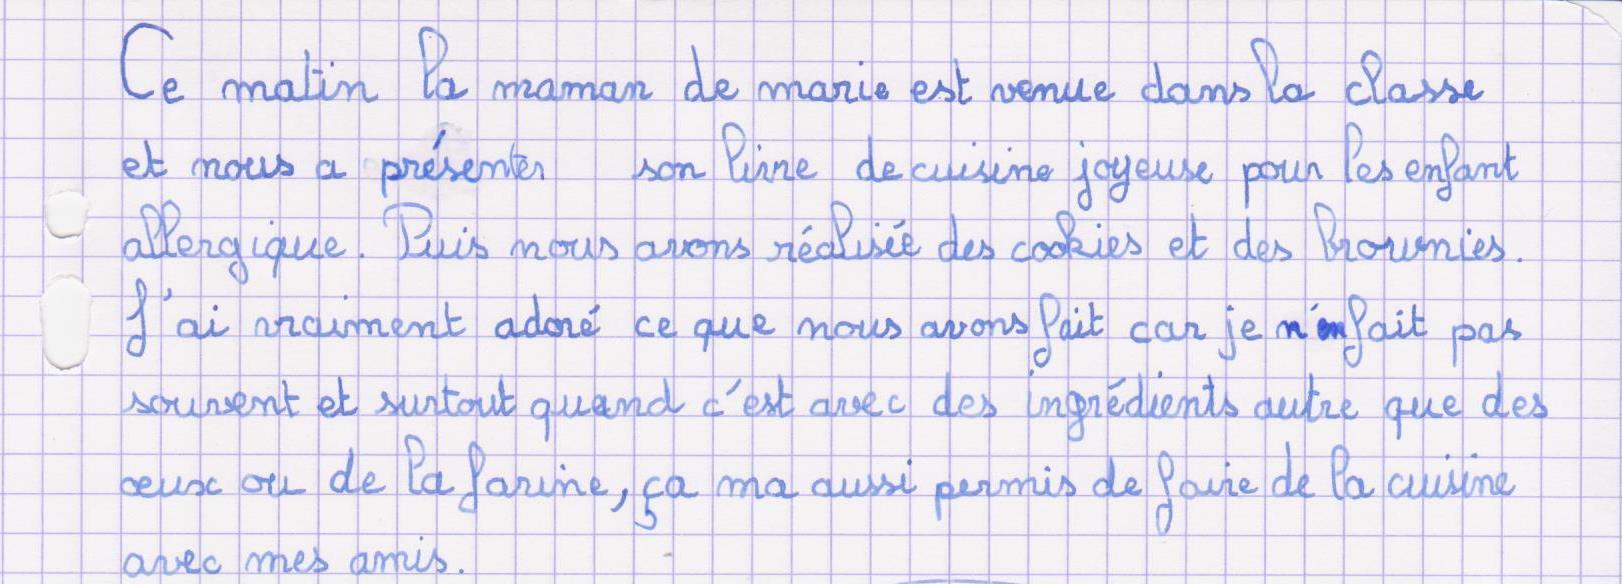 Ce matin la maman de marie est venue dans la classe
et nous a présenter son livre de cuisine joyeuse pour les enfant
allergique. Puis nous avons réalisée des cookies et des brownies.
J'ai vraiment adoré ce que nous avons fait car je n'en fait pas
souvent et surtout quand c'est avec des ingrédients autre que des
œux ou de la farine, ça ma aussi permis de faire de la cuisine
avec mes amis.